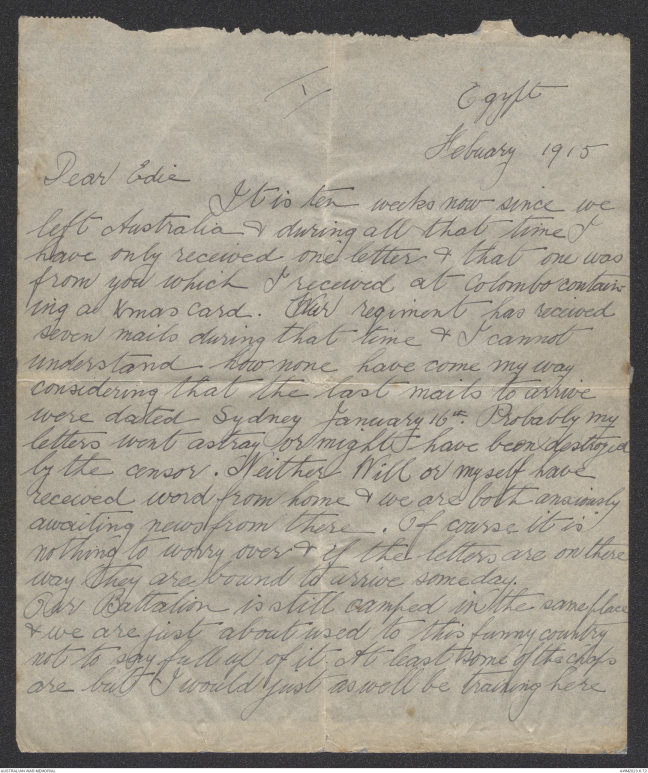 1
Egypt
Febuary 1915
Dear Edie
It is ten weeks now since we
left Australia & during all that time I
have only received one letter & that one was
from you which I received at Colombo contain-
ing a Xmas card. Our regiment has received
seven mails during that time & I cannot
understand how none have come my way
considering that the last mails to arrive
were dated Sydney January 16th. Probably my
letters went astray or might have been destroyed
by the censor. Neither Will or myself have
received word from home & we are both anxiously
awaiting news from there. Of course it is
nothing to worry over & if the letters are on there
way they are bound to arrive someday.
Our Battalion is still camped in the same place
& we are just about used to this funny country
not to say full up of it. At least some of the chaps
are but I would just as well be training here
AUSTRALIAN WAR MEMORIAL